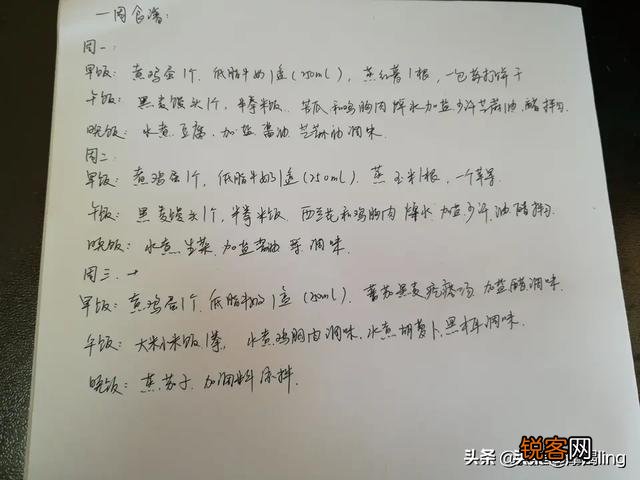 一周食谱:
周一:
早饭: 煮鸡蛋1个, 低脂牛奶1盒(250ml), 蒸红薯1根, 一包苏打饼干
午饭: 黑麦馒头1个, 半拳米饭. 苦瓜和鸡胸肉 焯水加盐少许芝麻油,醋拌匀.
晚饭: 水煮豆腐, 加盐 酱油 芝麻油调味
周二:
早饭: 煮鸡蛋1个, 低脂牛奶1盒(250ml). 蒸玉米1根, 一个苹果.
午饭: 黑麦馒头1个, 半拳米饭. 西兰花和鸡胸肉 焯水 加盐少许, 油醋拌匀.
晚饭: 水煮生菜, 加盐 酱油 调味.
周三.
早饭: 煮鸡蛋1个. 低脂牛奶1盒(250ml). 蕃茄黑麦疙瘩汤 加盐醋调味.
午饭: 大米小米饭1拳, 水煮鸡胸肉调味, 水煮胡萝卜,黑木耳调味.
晚饭: 蒸茄子, 加调料凉拌.
锐客网
头条 @ling